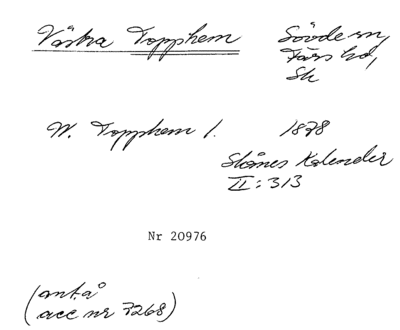 Västra Topphem Sövde sn,
Färs hd,
Sk
W. Topphem 1. 1878
Skånes Kalender
II:313
Nr 20976
(ant.å
acc nr 7268)